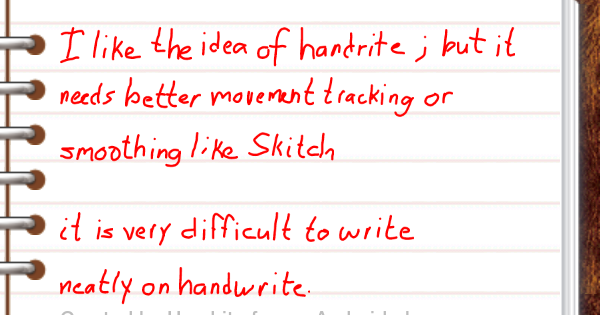 I like the idea of handrite ; but it
needs better movement tracking or
smoothing like Skitch
it is very difficult to write
neatly on handwrite.